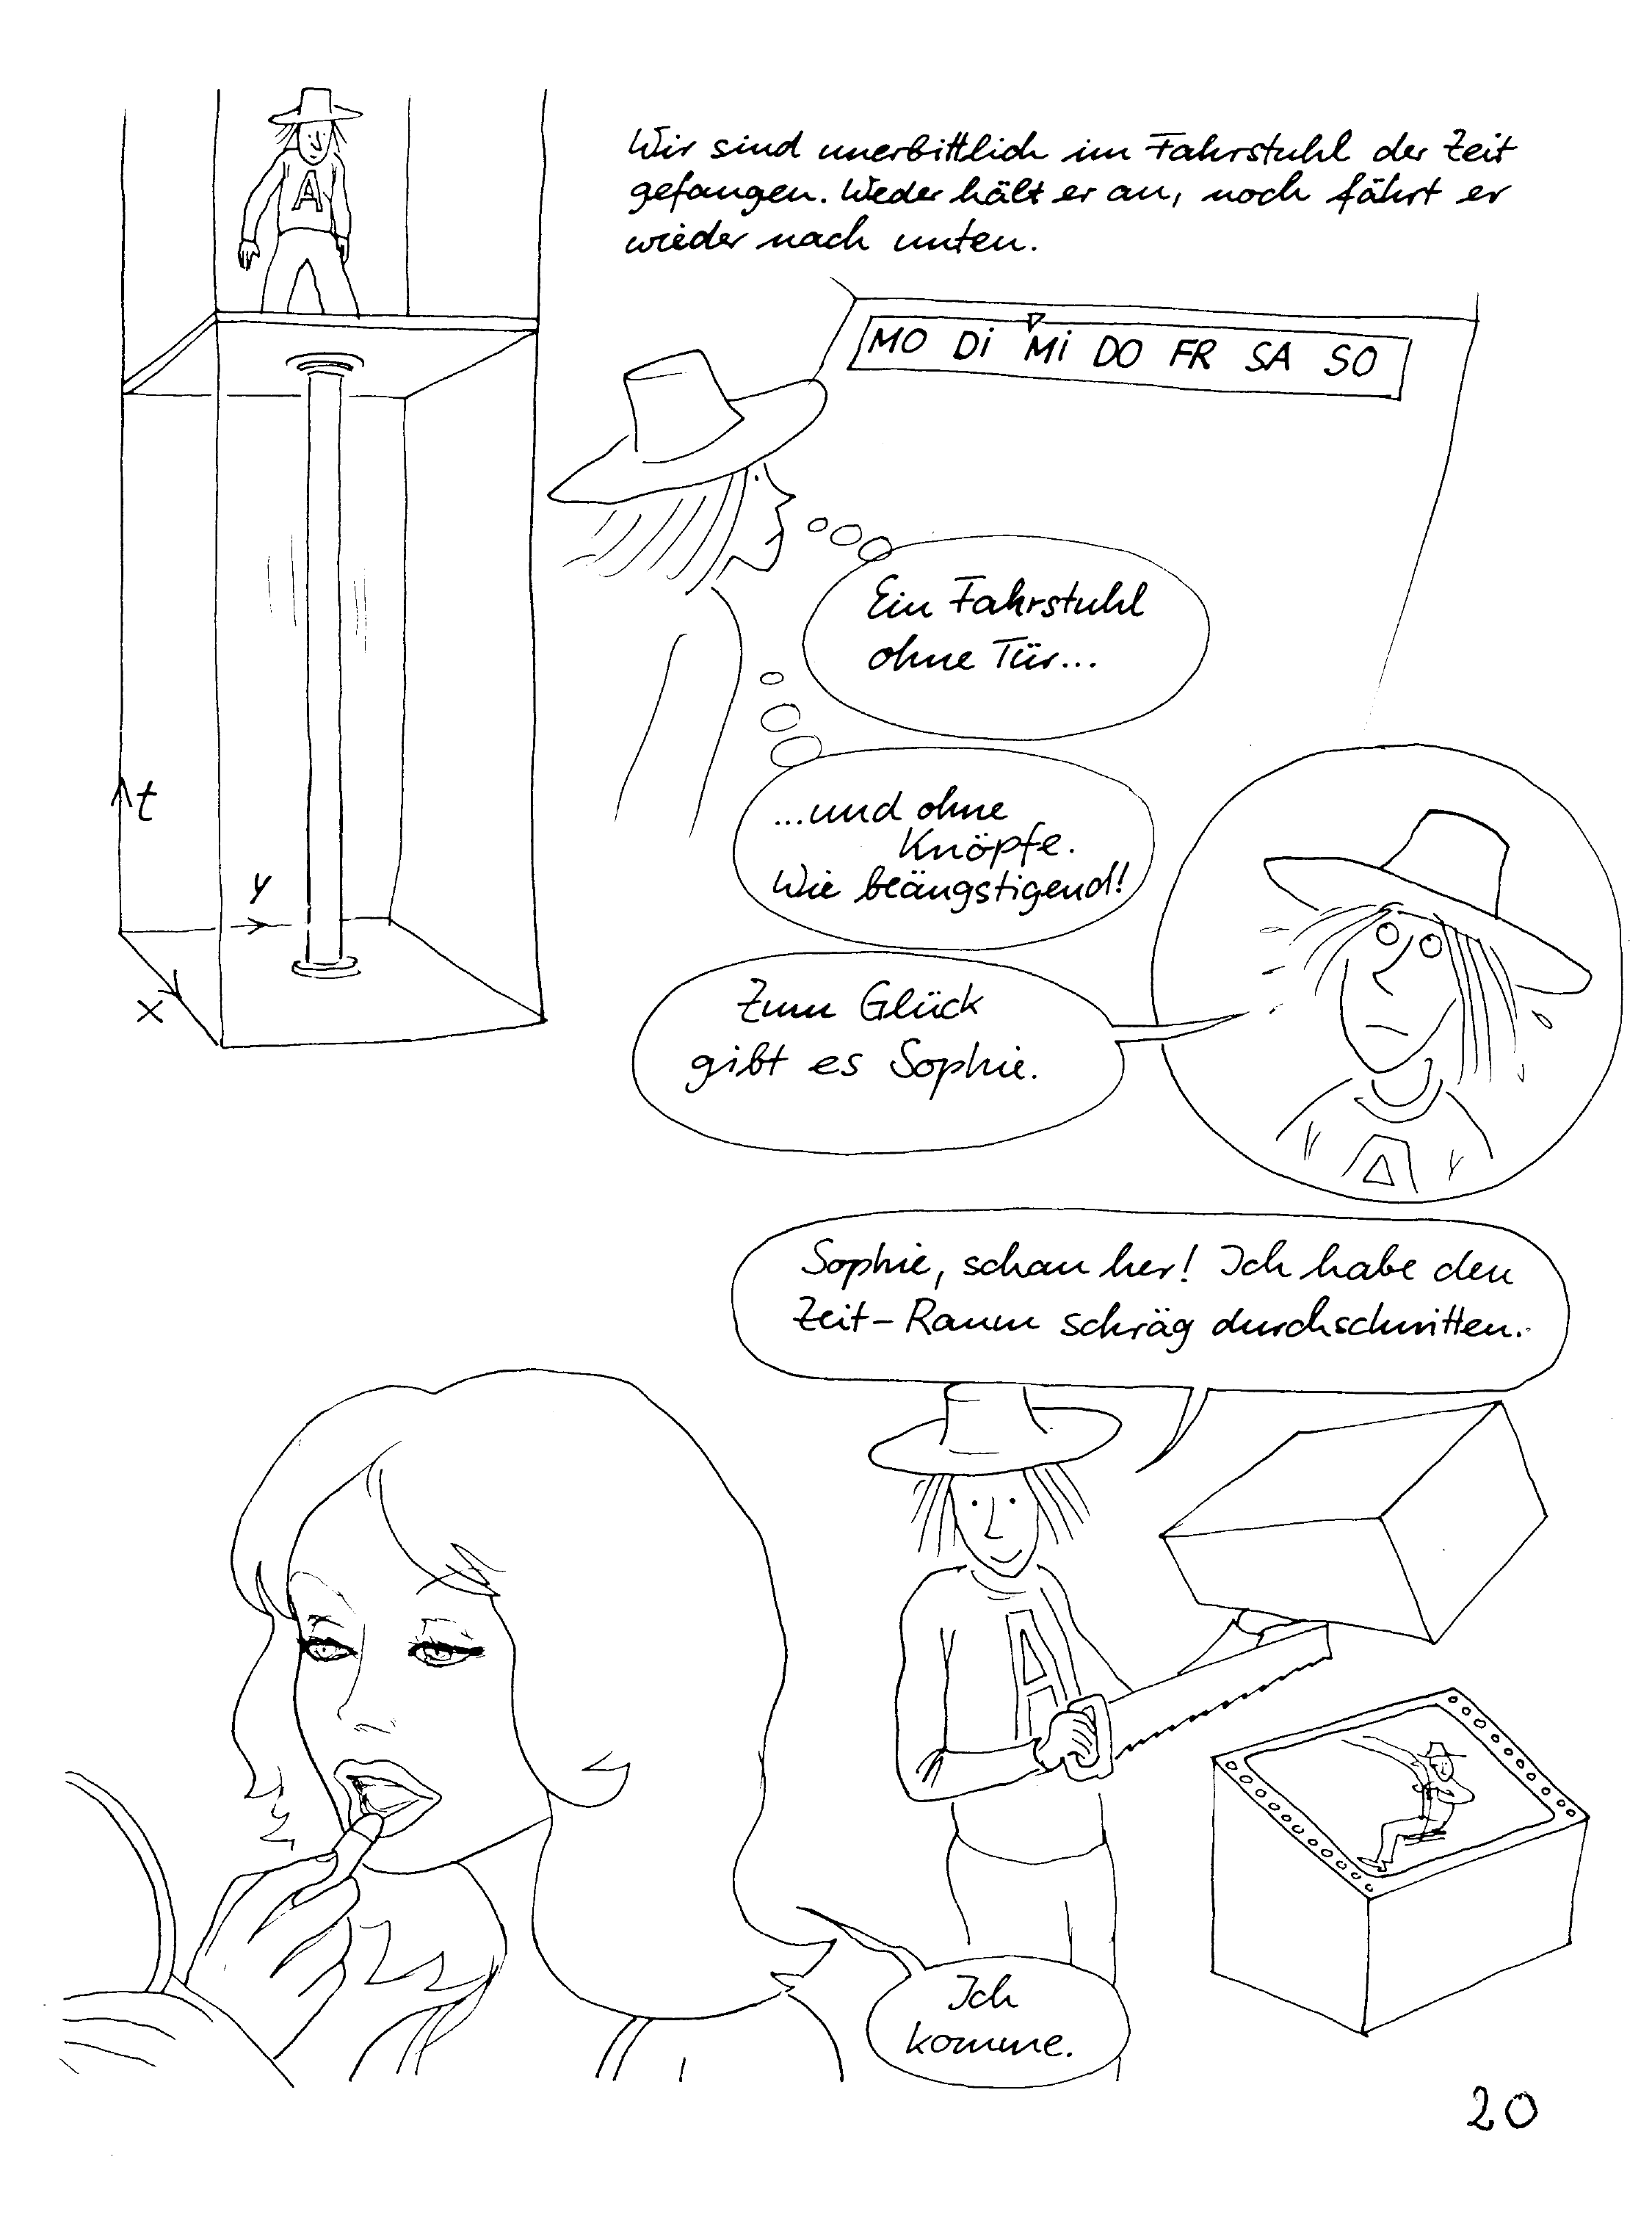 Wir sind unerbittlich im Fahrstuhl der Zeit
gefangen. Weder hält er an, noch fährt er
wieder nach unten.
A
MO Di Mi DO FR SA SO
Ein Fahrstuhl
ohne Tür...
t
y
x
...und ohne
Knöpfe.
Wie beängstigend!
Zum Glück
gibt es Sophie.
A
Sophie, schau her! Ich habe den
Zeit-Raum schräg durchschnitten.
A
Ich
komme.
20